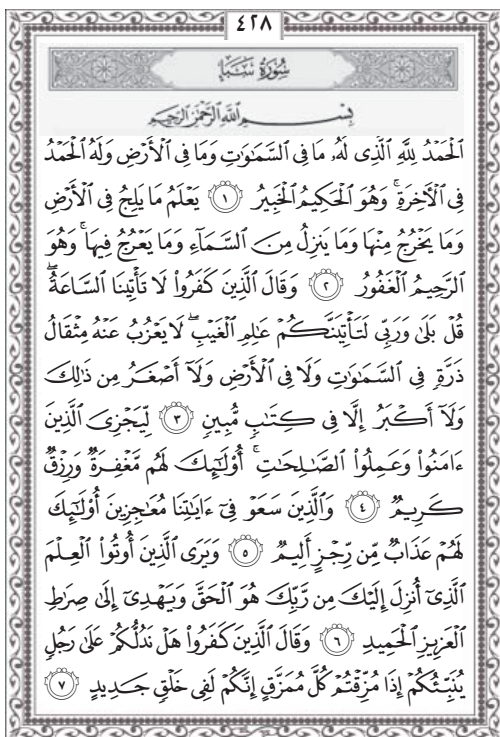 ٤٢٨
سُورَةُ سَبَإٍ
بِسْمِ ٱللَّهِ ٱلرَّحْمَٰنِ ٱلرَّحِيمِ
ٱلْحَمْدُ لِلَّهِ ٱلَّذِى لَهُۥ مَا فِى ٱلسَّمَٰوَٰتِ وَمَا فِى ٱلْأَرْضِ وَلَهُ ٱلْحَمْدُ
فِى ٱلْأَخِرَةِ ۚ وَهُوَ ٱلْحَكِيمُ ٱلْخَبِيرُ ١ يَعْلَمُ مَا يَلِجُ فِى ٱلْأَرْضِ
وَمَا يَخْرُجُ مِنْهَا وَمَا يَنزِلُ مِنَ ٱلسَّمَآءِ وَمَا يَعْرُجُ فِيهَا ۚ وَهُوَ
ٱلرَّحِيمُ ٱلْغَفُورُ ٢ وَقَالَ ٱلَّذِينَ كَفَرُوا۟ لَا تَأْتِينَا ٱلسَّاعَةُ ۖ
قُلْ بَلَىٰ وَرَبِّى لَتَأْتِيَنَّكُمْ عَٰلِمِ ٱلْغَيْبِ ۖ لَا يَعْزُبُ عَنْهُ مِثْقَالُ
ذَرَّةٍ فِى ٱلسَّمَٰوَٰتِ وَلَا فِى ٱلْأَرْضِ وَلَآ أَصْغَرُ مِن ذَٰلِكَ
وَلَآ أَكْبَرُ إِلَّا فِى كِتَٰبٍ مُّبِينٍ ٣ لِّيَجْزِىَ ٱلَّذِينَ
ءَامَنُوا۟ وَعَمِلُوا۟ ٱلصَّٰلِحَٰتِ ۚ أُو۟لَٰٓئِكَ لَهُم مَّغْفِرَةٌ وَرِزْقٌ
كَرِيمٌ ٤ وَٱلَّذِينَ سَعَوْ فِىٓ ءَايَٰتِنَا مُعَٰجِزِينَ أُو۟لَٰٓئِكَ
لَهُمْ عَذَابٌ مِّن رِّجْزٍ أَلِيمٌ ٥ وَيَرَى ٱلَّذِينَ أُوتُوا۟ ٱلْعِلْمَ
ٱلَّذِىٓ أُنزِلَ إِلَيْكَ مِن رَّبِّكَ هُوَ ٱلْحَقَّ وَيَهْدِىٓ إِلَىٰ صِرَٰطِ
ٱلْعَزِيزِ ٱلْحَمِيدِ ٦ وَقَالَ ٱلَّذِينَ كَفَرُوا۟ هَلْ نَدُلُّكُمْ عَلَىٰ رَجُلٍ
يُنَبِّئُكُمْ إِذَا مُزِّقْتُمْ كُلَّ مُمَزَّقٍ إِنَّكُمْ لَفِى خَلْقٍ جَدِيدٍ ٧